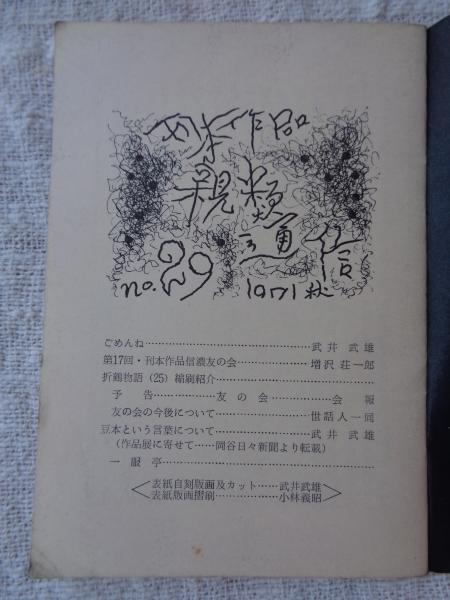 刊本作品
親類通信
no.29 1971秋
ごめんね……武井武雄
第17回・刊本作品信濃友の会……増沢荘一郎
折鶴物語（25）縮刷紹介……
予告……友の会……会報
友の会の今後について……世話人一同
豆本という言葉について……武井武雄
（作品展に寄せて……岡谷日々新聞より転載）
一服亭……
表紙自刻版画及カット……武井武雄
表紙版画摺刷……小林義昭